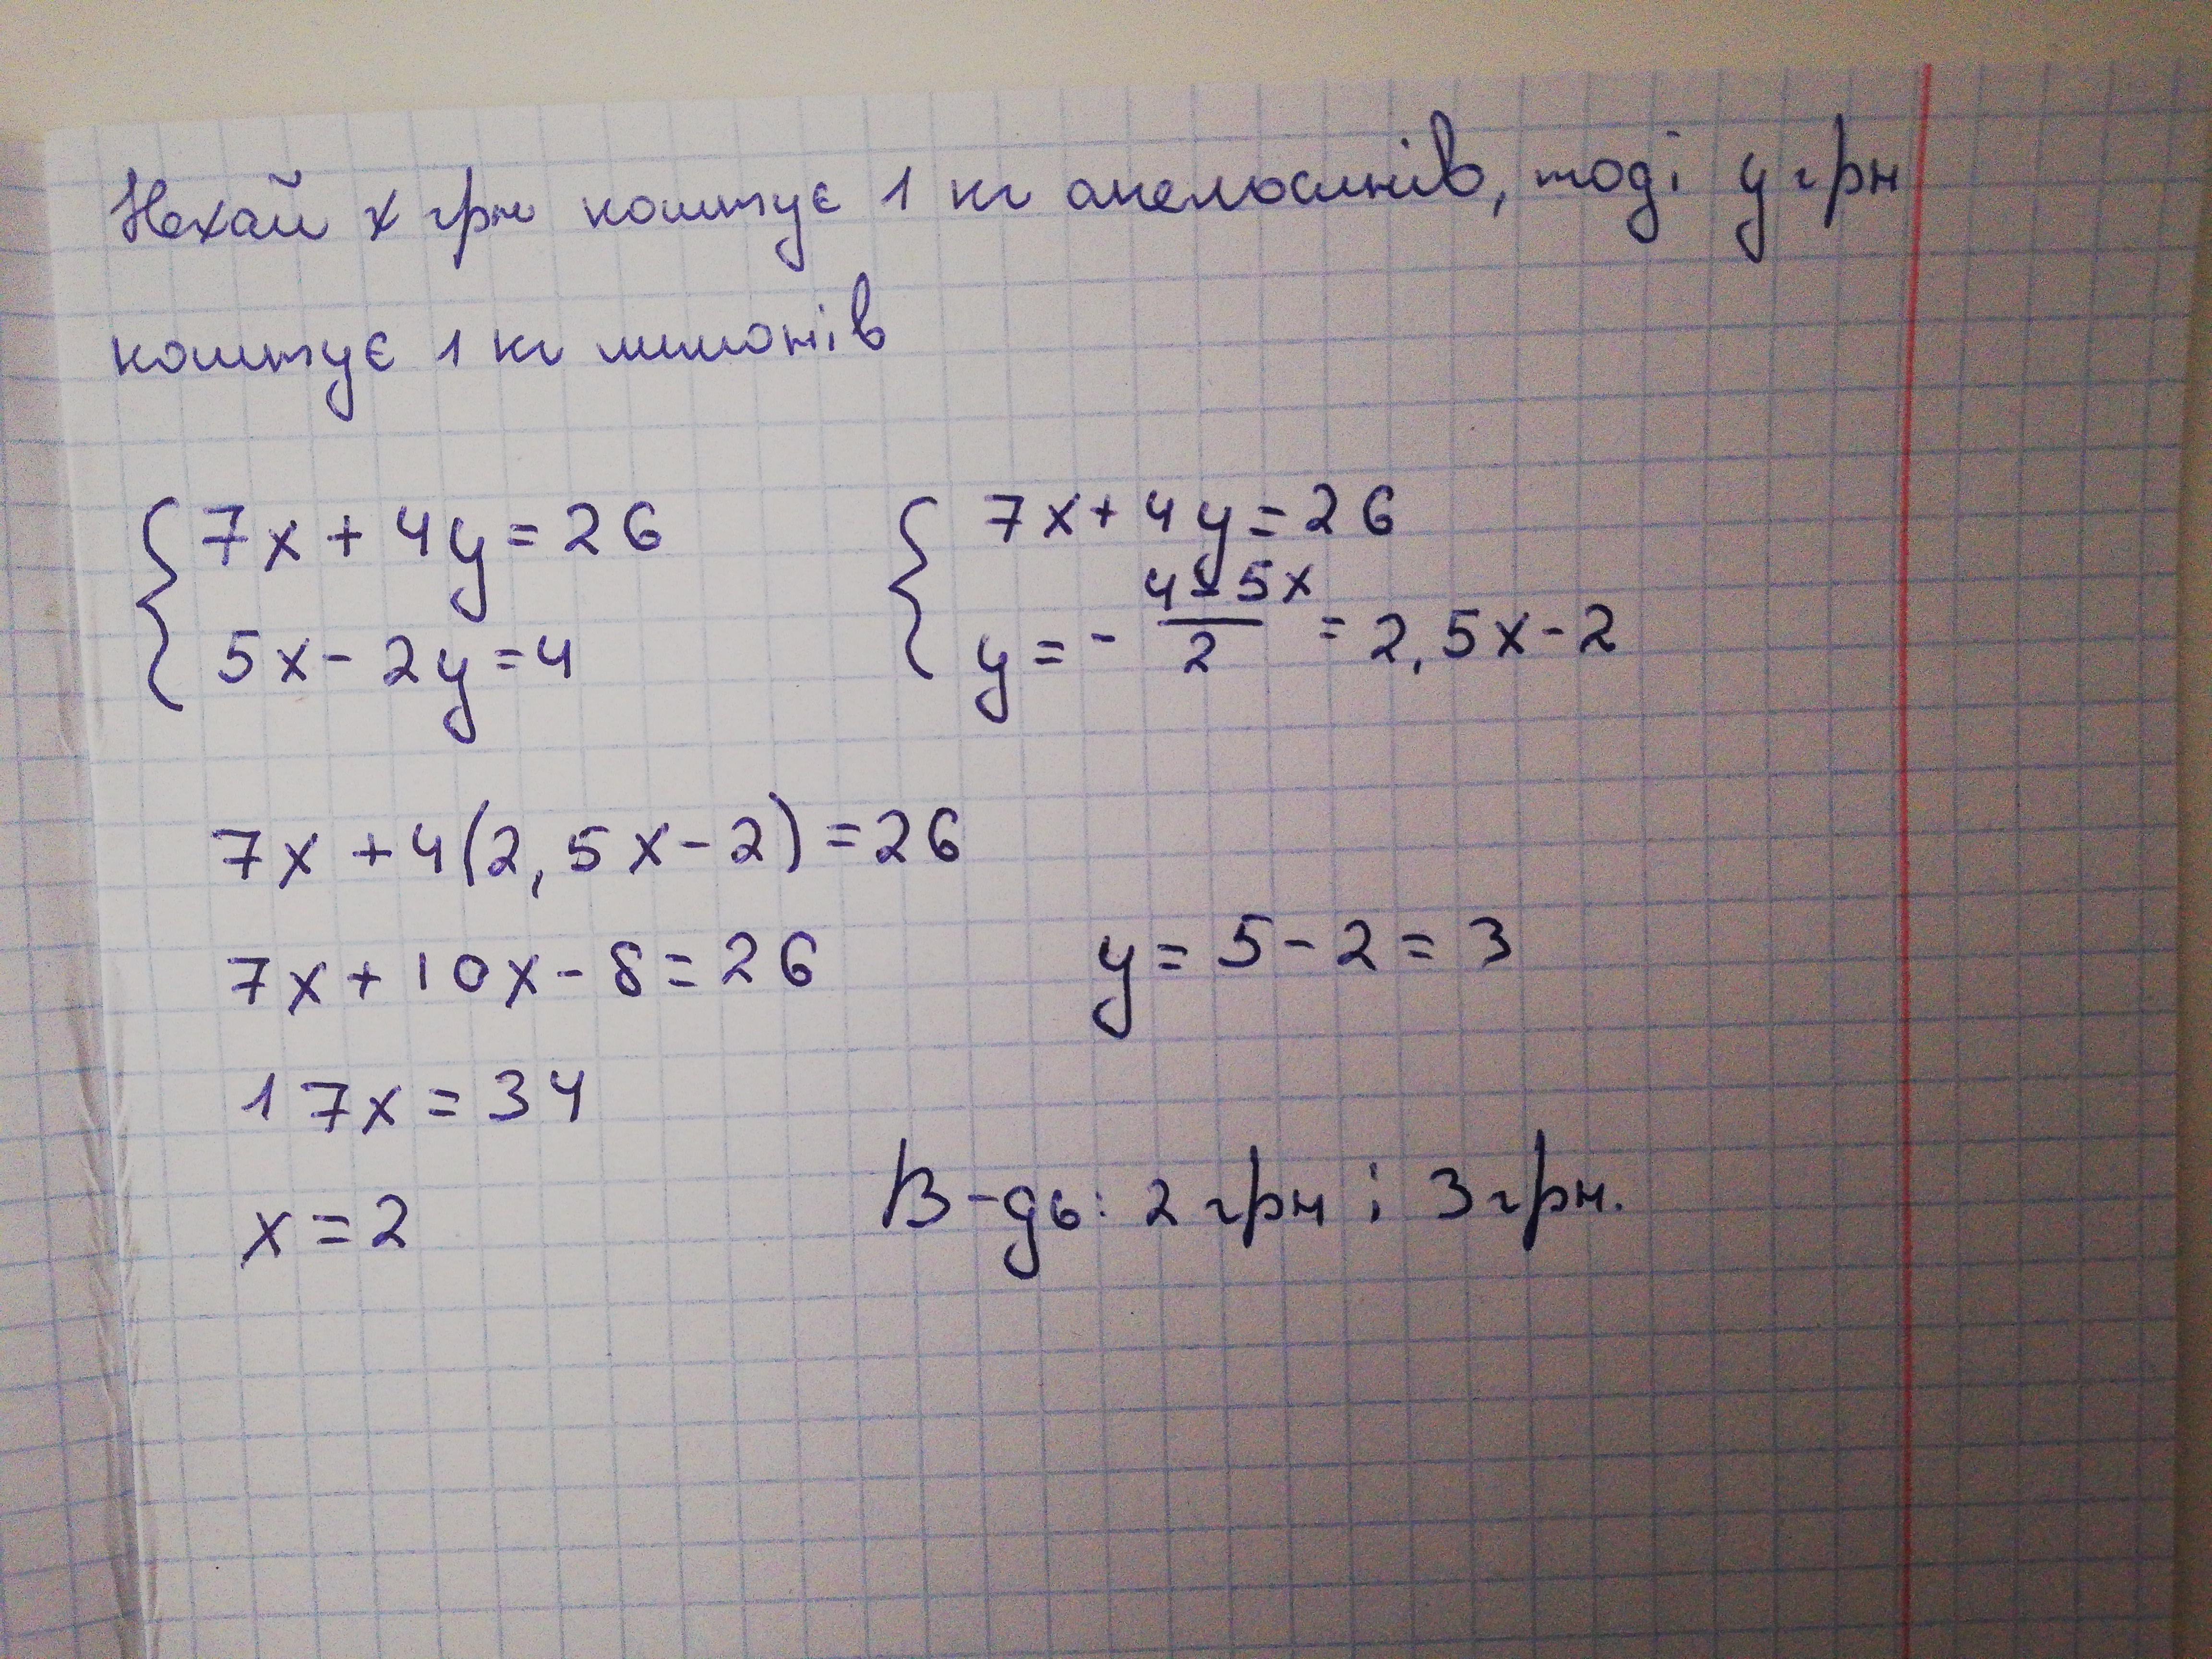 Нехай x грн коштує 1 кг апельсинів, тоді y грн
коштує 1 кг лимонів
{ 7x + 4y = 26
5x - 2y = 4
{ 7x + 4y = 26
y = - (4 - 5x)/2 = 2,5x - 2
7x + 4(2,5x - 2) = 26
7x + 10x - 8 = 26
17x = 34
x = 2
y = 5 - 2 = 3
В-дь: 2 грн і 3 грн.